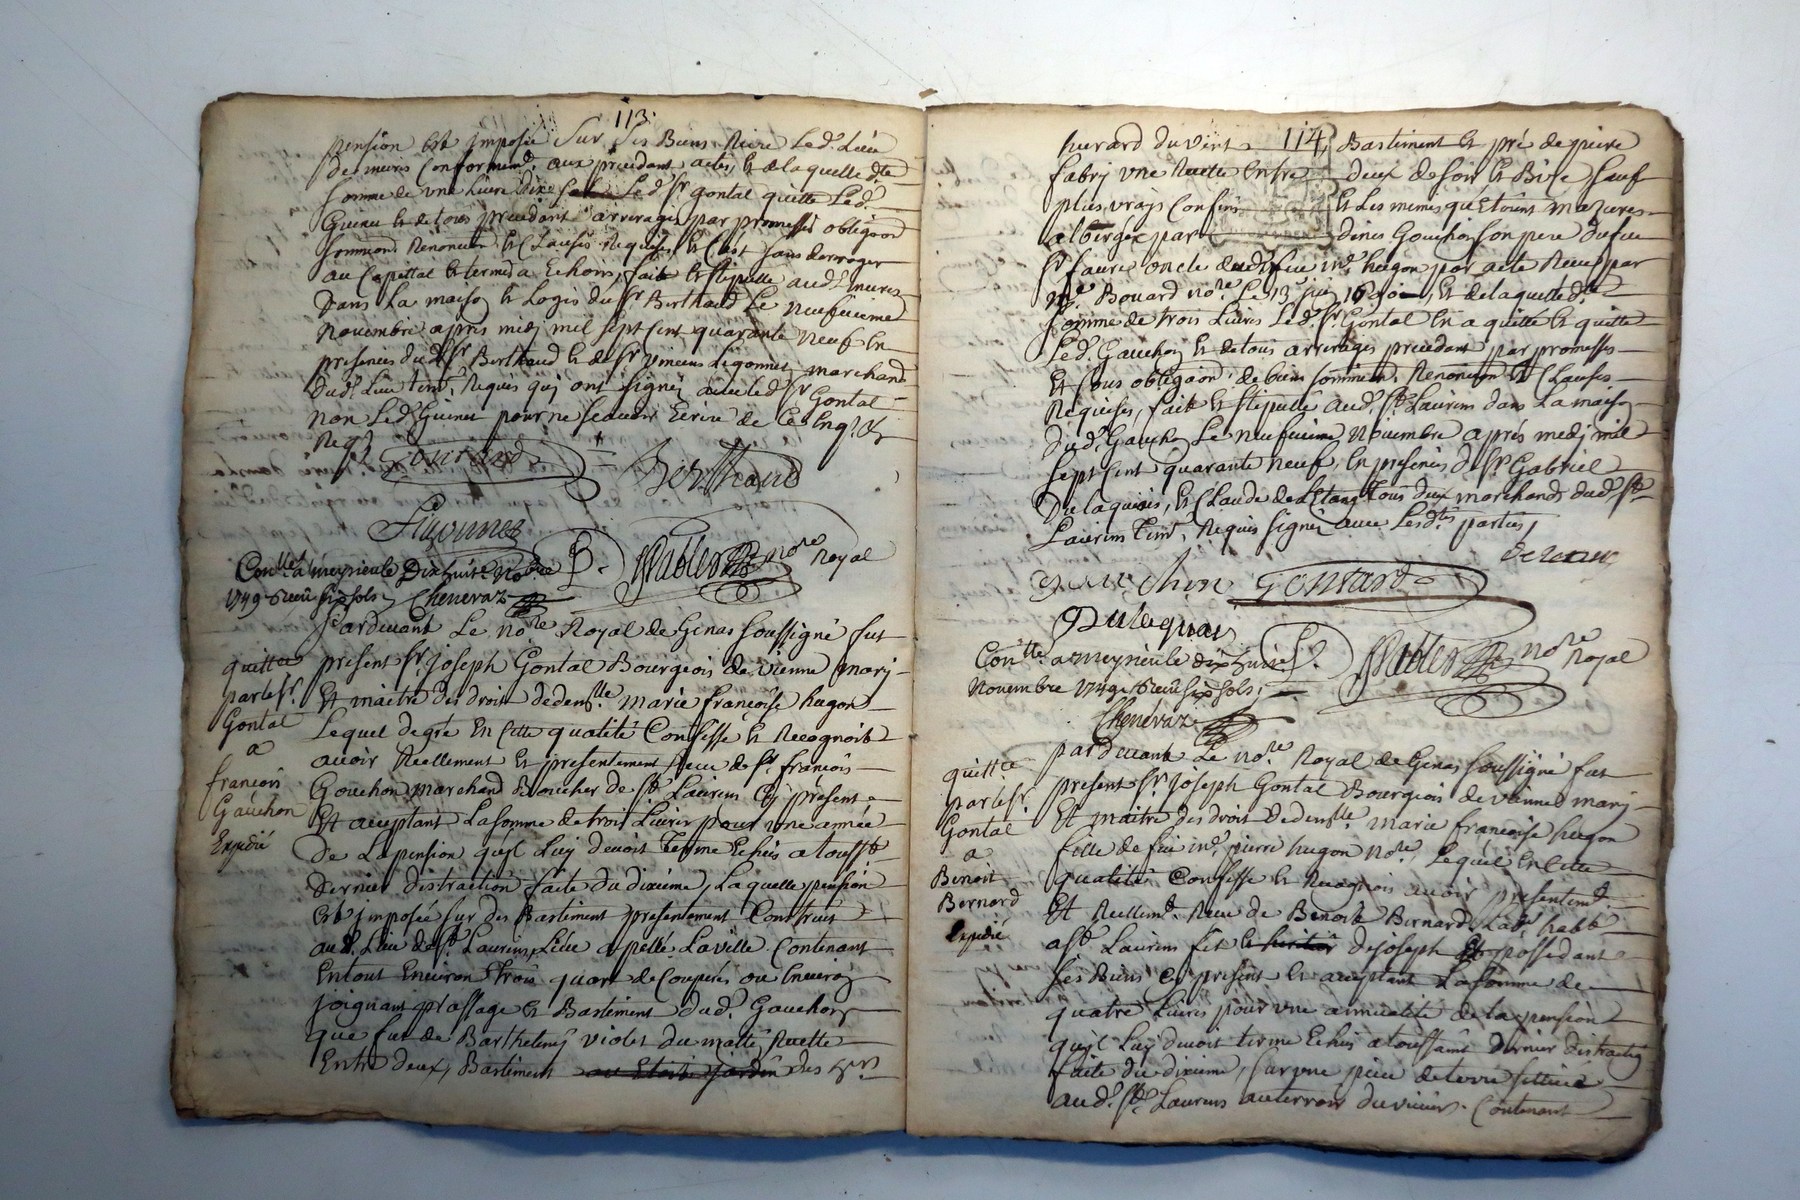 113.
pension est imposée sur ses Biens Riere Led. Lieu
de meiris conformem.t aux precedant actes, et de laquelle d.te
somme de une Livre dixe Led. Sr gontal quitte Led.
Guenu et de tous precedant arrerages par promesses obligaon
sommaond Renonciaon et Clauses Requises, et C'est sans derroger
au Cappittal et termes a Echoir, fait et stipullé aud.t
Dans La maison et Logis du Sr Berthaud Le neufvieme
Novembre apres midi mil sept Cent quarante neuf En
presences dud. Sr Berthaud et de Sr vincens Ligonnet marchand
dud. Lieu tem.t Requis qui ont signé avec led. Sr Gontal
non Led. Guenu pour ne scavoir Ecrire de Ce Enq.s &
Req.s Gontard
Berthaud
Ligonnet
Con.lle a meyrieule Dixhuit no.bre
1749. Receu six sols, Chenevaz
no.re Royal
Pardevant Le no.re Royal de Genas soussigné fut
quitte par le Sr. Gontal a francois Gauchon Expedié
present Sr. joseph Gontal Bourgeois de vienne mary
Et maitre des droit de dem.lle marie françoise hugon
Lequel de gré En Cette qualité Confesse et Recognoit
avoir Reellement et presentement Receu de Sr. françois
Gouchon marchand Boucher de St. Laurens Cy present
Et acceptant La somme de trois Livres pour une année
De La pension qu'il Luy devoit Terme Echeu a touss.ts
Dernier distraction faite du dixieme, Laquelle pension
Est imposée sur des Bastiment presentement Construit
aud. Lieu de St. Laurens, Lieu appellé La ville. Contenant
En tout Environ trois quart de Couperés ou Environ
joignant passage et Bastiment dud. Gauchon
que fut de Barthelemy violet du matin Ruette
Entre deux, Bastiment des
114
hurard du vent Bastiment et pré de pierre
fabry une Ruette Entre deux de soir et Bize sauf
plus vrays Confins Et Les memes qu'Etoint mazures
albergéx par denis Gouchon son pere du feu
Sr faure oncle dud. feu m.e hugon par acte Receu par
m.e Bouard no.re Le 13 juin 16 et de laquelle d.te
somme de trois Livres Led. Sr Gontal En a quitté et quitte
Led. Gauchon et de tous arrerages precedant par promesses
Et sous obligaon de biens sommaond. Renonciaon et Clauses
Requises, fait et stipullé aud. St. Laurens dans La maison
dud. Gauchon Le neufvieme Novembre apres medi mil
sept Cent quarante neuf, En presences de Sr. Gabriel
Dulaquais, et Claude de Letang tous deux marchands dud. St.
Laurens Tem.t, Requis signé avec Lesd.tes parties,
Gontard
Dulaquais
Con.lle a meyrieule dixhuit
Novembre 1749. Receu six sols,
Chenevaz
no.re Royal
pardevant Le no.re Royal de Genas soussigné fut
quitte par le Sr. Gontal a Benoit Bernard Expedié
present Sr. joseph Gontal Bourgeois de vienne mary
Et maitre des droit de dem.lle marie françoise hugon
fille de feu m.e pierre hugon no.re, Lequel En Cette
qualité Confesse et Recognois avoir presentem.t
Et Reellem.t Receu de Benoit Bernard Lab.r hab.t
a St. Laurens fils de joseph possedant
ses Biens Cy present et acceptant La somme de
quatre Livres pour une annualité de La pension
qu'il Luy devoit terme Echeu a toussaint dernier distraction
faite du dixieme, sur une piece de terre sittuée
aud. St. Laurens au terroir du vivier. Contenant